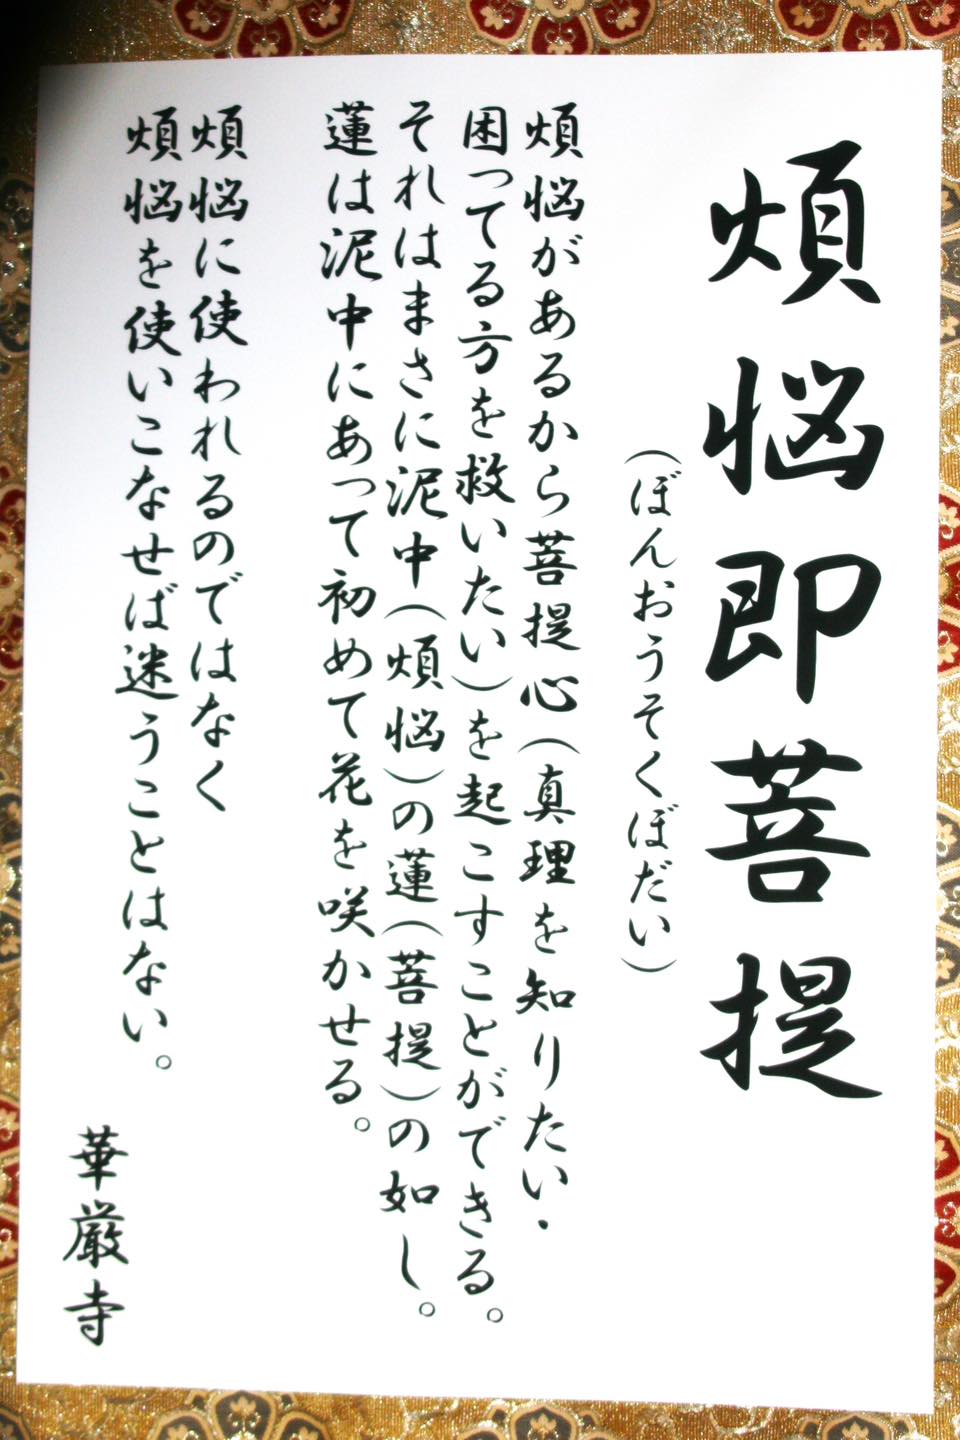 煩悩即菩提
(ぼんおうそくぼだい)
煩悩があるから菩提心(真理を知りたい・
困ってる方を救いたい)を起こすことができる。
それはまさに泥中(煩悩)の蓮(菩提)の如し。
蓮は泥中にあって初めて花を咲かせる。
煩悩に使われるのではなく
煩悩を使いこなせば迷うことはない。
華厳寺